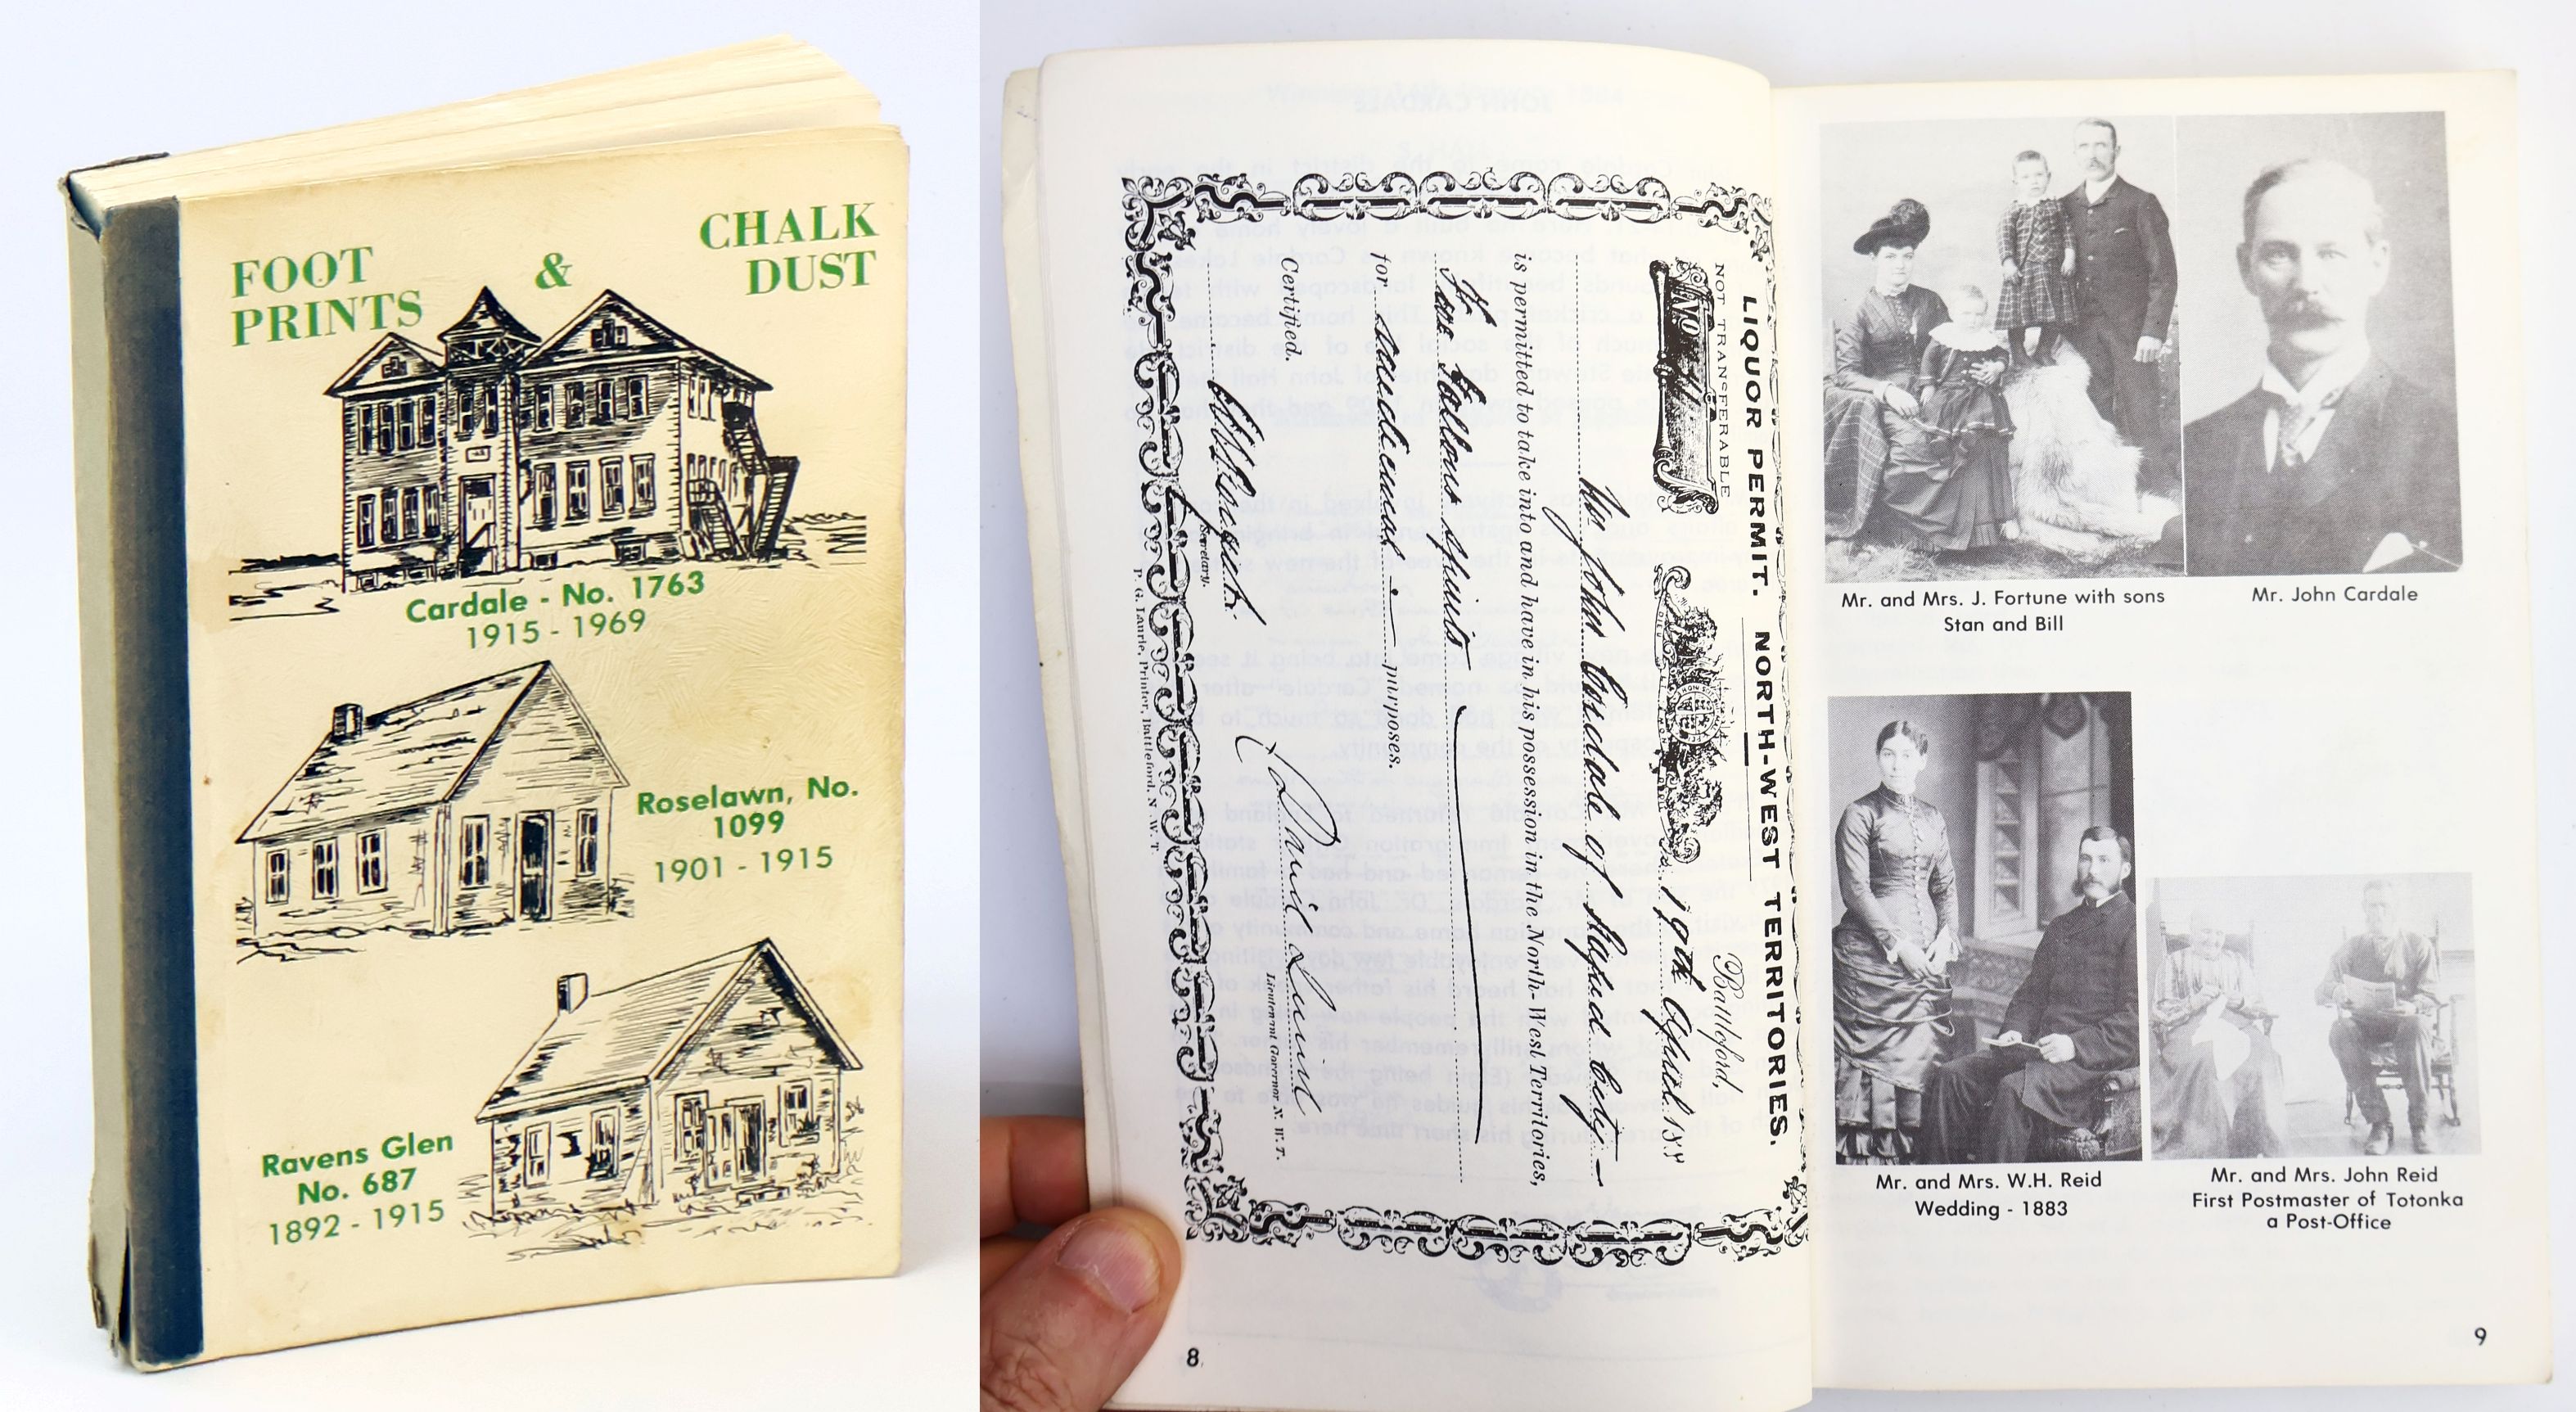 FOOT
PRINTS
&
CHALK
DUST
Cardale - No. 1763
1915 - 1969
Roselawn, No.
1099
1901 - 1915
Ravens Glen
No. 687
1892 - 1915
LIQUOR PERMIT. NORTH-WEST TERRITORIES.
NOT TRANSFERABLE
Battleford,
No.
19th April 188
Mr John Cardale of Rapid City
is permitted to take into and have in his possession in the North-West Territories,
Two Gallons
for purposes.
Certified.
Secretary.
David Laird
Lieutenant Governor N. W. T.
P. G. Laurie, Printer, Battleford, N. W. T.
8
Mr. and Mrs. J. Fortune with sons
Stan and Bill
Mr. John Cardale
Mr. and Mrs. W.H. Reid
Wedding - 1883
Mr. and Mrs. John Reid
First Postmaster of Totonka
a Post-Office
9